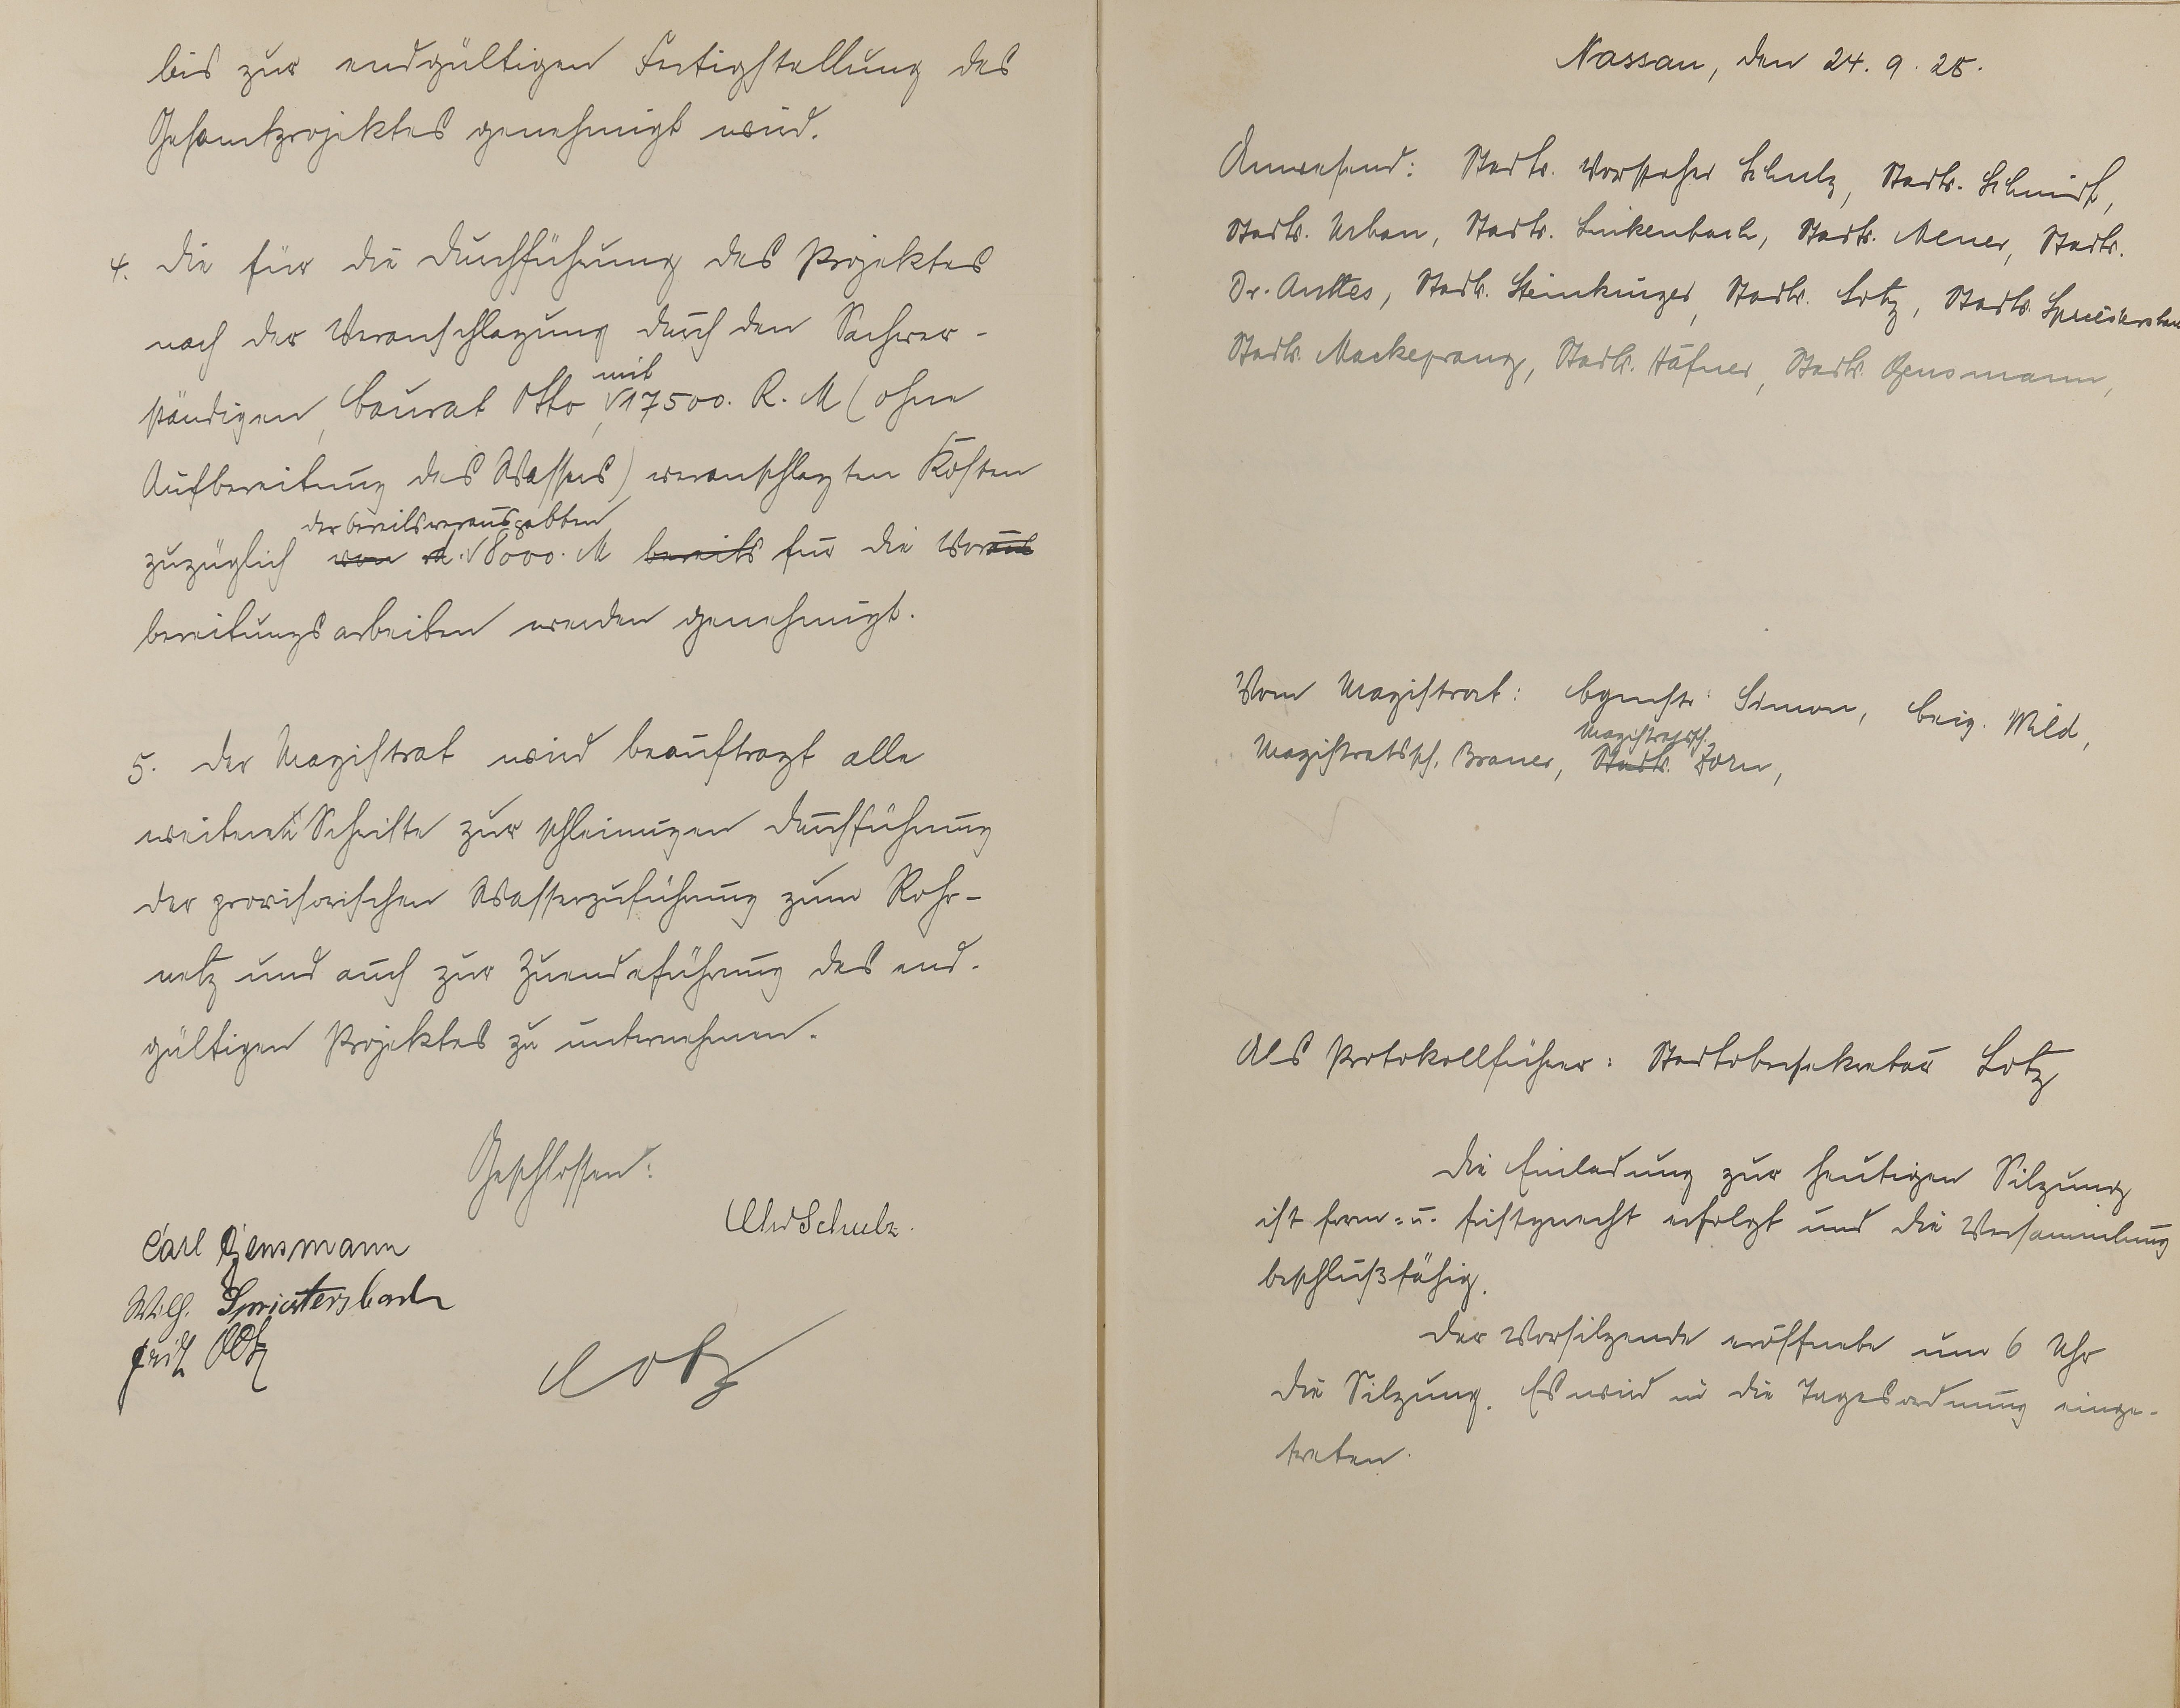 bis zur endgültigen Fertigstellung des
Gesamtprojektes genehmigt wird.
4. Die für die Durchführung des Projektes
nach der Veranschlagung durch den Sachver-
ständigen, Baurat Otto, mit 17500. R. M (ohne
Aufbereitung des Wassers) veranschlagten Kosten
zuzüglich der bereits verausgabten 8000. M für die Vor
bereitungsarbeiten werden genehmigt.
5. Der Magistrat wird beauftragt alle
weiteren Schritte zur schleunigen Durchführung
der provisorischen Wasserzuführung zum Rohr-
netz und auch zur Zuendeführung des end-
gültigen Projektes zu unternehmen.
Geschlossen:
Schulz.
Carl Gensmann
Wilh. Spriestersbach
Fritz
Lotz
Nassau, den 24. 9. 25.
Anwesend: Stadtv. Vorsteher Schulz, Stadtv. Schmidt,
Stadtv. Urban, Stadtv. Linkenbach, Stadtv. Meuer, Stadtv.
Dr. Anthes, Stadtv. Steinkünzer, Stadtv. Lotz, Stadtv. Spriestersbach
Stadtv. Mackeprang, Stadtv. Häfner, Stadtv. Gensmann,
Vom Magistrat: Bgmstr. Beig. Wild,
Magistratssch. Braner, Magistratssch. Zorn,
Als Protokollführer: Stadtobersekretär Lotz
Die Einladung zur heutigen Sitzung
ist form- u. fristgerecht erfolgt und die Versammlung
beschlußfähig.
Der Vorsitzende eröffnete um 6 Uhr
die Sitzung. Es wird in die Tagesordnung einge-
treten.